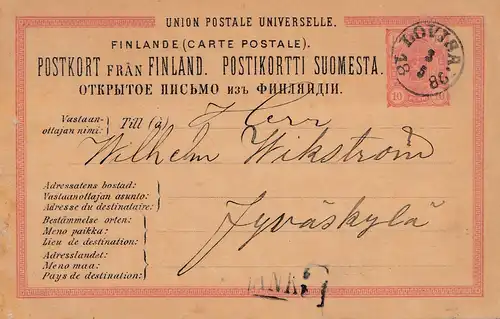 UNION POSTALE UNIVERSELLE.
FINLANDE (CARTE POSTALE).
POSTKORT FRÅN FINLAND. POSTIKORTTI SUOMESTA.
ОТКРЫТОЕ ПИСЬМО изъ ФИНЛЯНДІИ.
LOVISA.
3
5
86
10 10
Vastaan-
ottajan nimi:
Till (à)
Herr
Wilhelm Wikström
Adressatens bostad:
Vastaanottajan asunto:
Adresse du destinataire:
Bestämmelse orten:
Meno paikka:
Lieu de destination:
Jyväskylä
Adresslandet:
Meno maa:
Pays de destination: